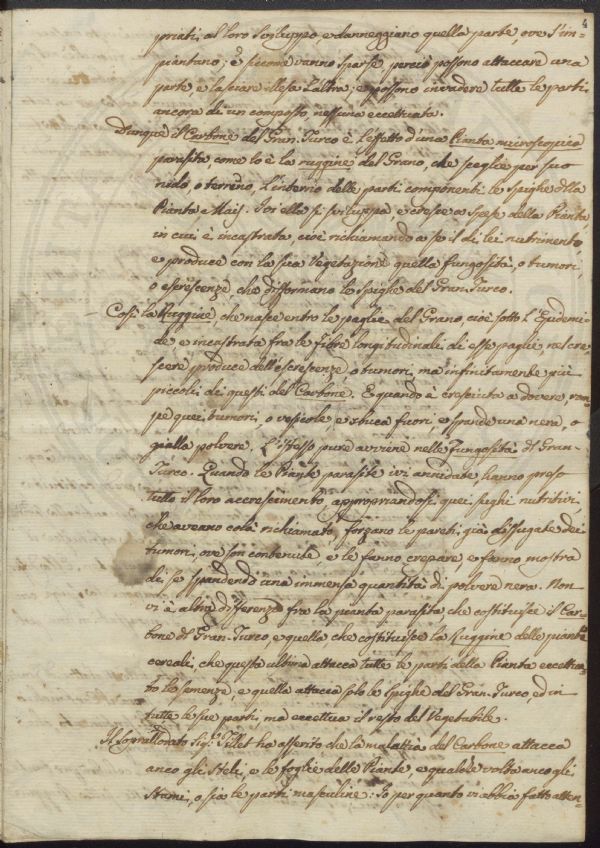 4
priati, al loro sviluppo e danneggiano quella parte, ove s'im=
piantano; e siccome vanno sparse perciò possono attaccare una
parte e lasciare illesa l'altra; e possono invadere tutte le parti
ancora di un composto, nessuna eccettuata.
Dunque il Carbone del Gran-Turco è l'effetto d'una Pianta microscopica
parasita come lo è la ruggine del Grano, che sceglie per suo
nido, o terreno, l'interno delle parti componenti le Spighe della
Pianta Mais. Ivi ella si sviluppa, e cresce a spese della Pianta,
in cui è incastrata, cioè richiamando a se il di lei nutrimento,
e produce con la sua Vegetazione quella fungosità, o tumori,
o escrescenze che difformano le Spighe del Gran-Turco.
Così la Ruggine, che nasce entro le paglie del Grano, cioè sotto l'Epidermi=
de e incastrata fra le Fibre longitudinali di esse paglie nel cre=
scere produce dell'escrescenze o tumori, ma infinitamente più
piccoli di questi del Carbone. E quando è cresciuta a dovere, rom=
pe quei tumori, o vesicole, e sbuca fuori e spande una nera, o
gialla polvere. L'istesso pure avviene nelle Fungosità del Gran-
Turco. Quando le Piante parasite ivi annidate hanno preso
tutto il loro accrescimento, appropriandosi quei sughi nutritivi,
che aveano colà richiamato, forzano le pareti già dissugate dei
tumori, ove son contenute, e le fanno crepare e fanno mostra
di se spandendo una immensa quantità di polvere nera. Non
vi è altra differenza fra la pianta parasita che costituisce il Car=
bone del Gran-Turco, e quella che costituisce la Ruggine delle piante
cereali, che questa ultima attacca tutte le parti della Pianta eccettua=
to le semenze, e quella attacca solo le Spighe del Gran-Turco, ed in
tutte le sue parti, ma eccettua il resto del Vegetabile.
Il Sopralodato Sigr. Tillet ha asserito che la malattia del Carbone attacca
anco gli Steli, e le foglie delle Piante, e qualche volta anco gli
Stami, o sia le parti masculine: Io per quanto vi abbia fatto atten=